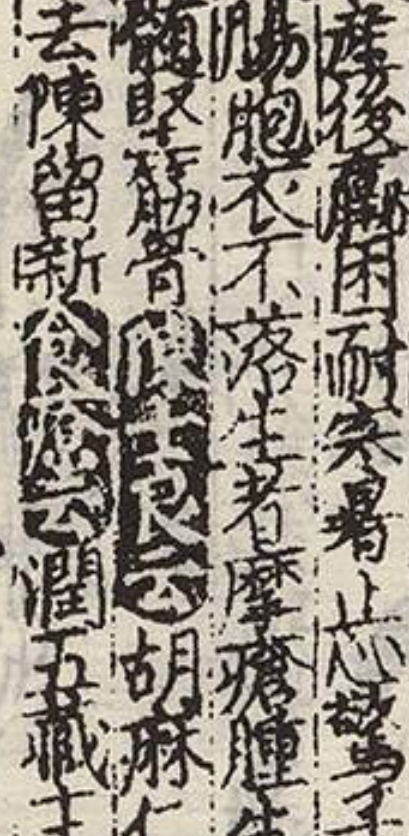 產後羸困耐寒暑止心驚子
腸胞衣不落生者摩瘡腫生
髓堅筋骨陳士良云胡麻仁
去陳留新食療云潤五藏主